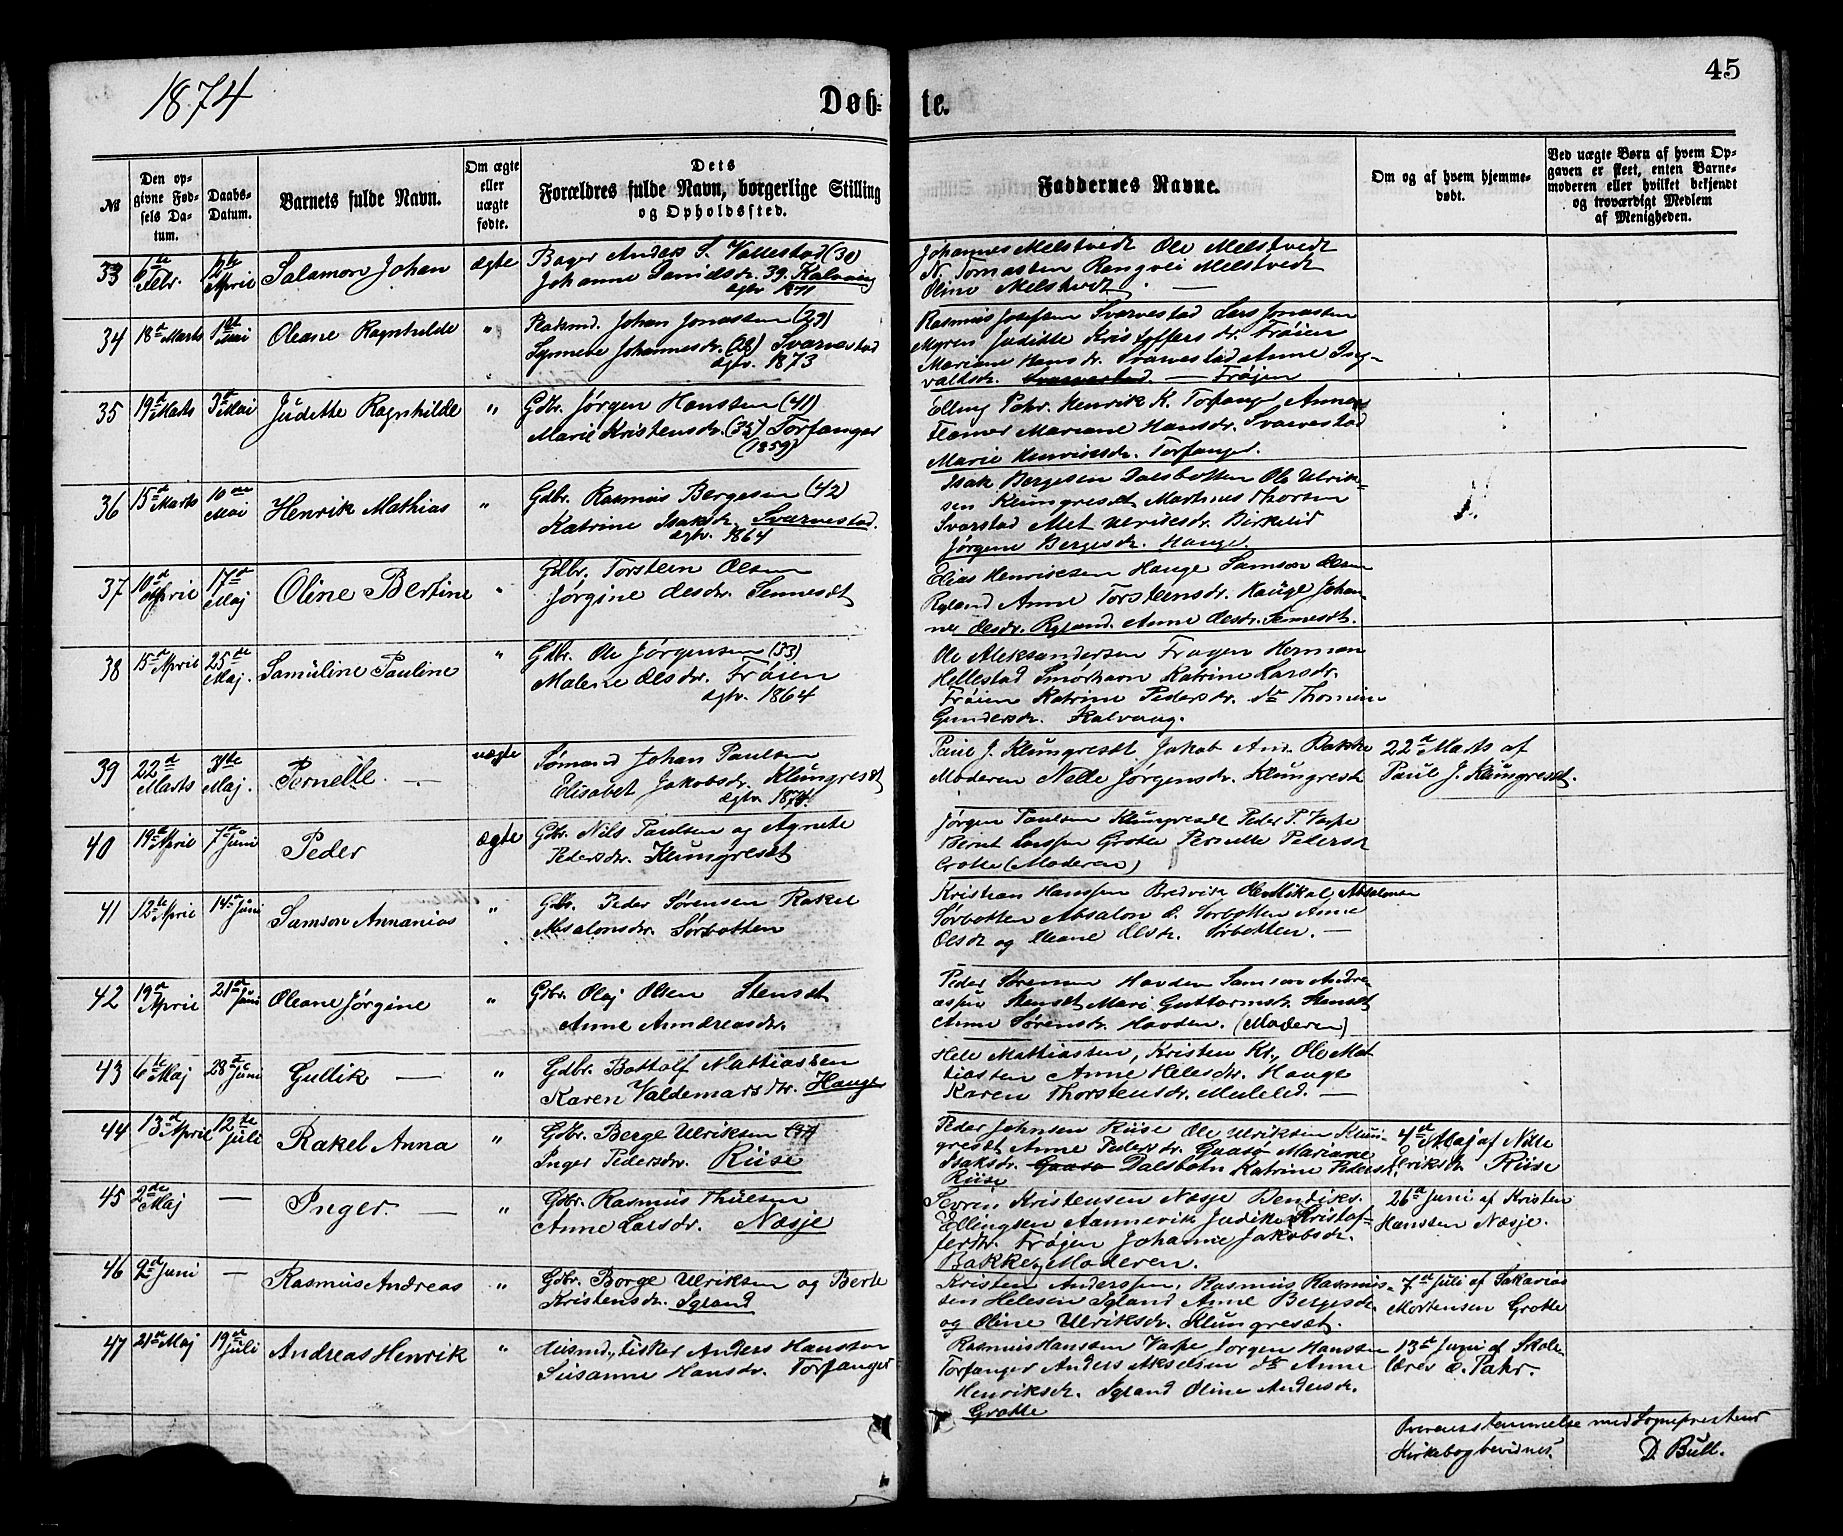 1874
Døb-
te.
45
№
Den op-
givne Fød-
sels Da-
tum.
Daabs-
Datum.
Barnets fulde Navn.
Om ægte
eller
uægte
fødte.
Dets
Forældres fulde Navn, borgerlige Stilling
og Opholdssted.
Faddernes Navne.
Om og af hvem hjemme-
døbt.
Ved uægte Børn af hvem Op-
gaven er skeet, enten Barne-
moderen eller hvilket bekjendt
og troværdigt Medlem
af Menigheden.
33
6te
Febr.
12te
April
Salamon Johan
ægte
Bager Anders S. Vallestad (30)
Johanne Danielsdr. 39. Kalvaag
ægtv. 1871
Johannes Melstvedt Ole Melstvedt
N. Tomassen Rangvei Melstvedt
Oline Melstvedt
34
18de Marts
1ste Mai
Oleane Ragnhilde
"
Pladsmd. Johan Jonassen (29)
Synneve Johannesdr. (28) Svarvestad
ægtv. 1873
Rasmus Josefsen Svarvestad Lars Jonassen
Myren Juditte Kristoffersdr. Frøien
Mariane Hansdr. Svarvestad Anne Ing-
valdsdr. Svarvestad. — Frøjen
35
19de Marts
3de Mai
Judette Ragnhilde
"
Gdbr. Jørgen Hanssen (41)
Marie Kristensdr. (35) Torfanger
(1859)
Elling Pahr. Henrik K. Torfanger Anne
Mariane Hansdr. Svarvestad
Marie Henriksdr. Torfanger.
36
15de Marts
10de Mai
Henrik Mathias
"
Gdbr. Rasmus Bergesen (42)
Katrine Isaksdr. Svarvestad.
ægtv. 1864
Isak Bergesen Dalsbotten Ole Ulrik-
sen Klungresæt Martinus Thorsen
Svarstad Met Ulriksdr. Birkelid
Jørgine Bergesdr. Hauge
37
10de April
17de Maj
Oline Bertine
"
Gdbr. Torsten Olsen
Jørgine Olesdr. Sennesæt
Elias Henriksen Hauge Samson Olsen
Ryland Anne Torstensdr. Hauge Johan-
ne Olesdr. Ryland. Anne Olesdr. Sennesæt.
38
15de April
25de Maj.
Samuline Pauline
"
Gdbr. Ole Jørgensen (33)
Malene Olesdr. Frøien
ægtv. 1864
Ole Aleksandersen Frøyen Herman
Hellestad Smørhavn Katrine Larsdr.
Frøien Katrine Pedersdr. do Thomine
Gundersdr. Kalvaag.
39
22de
Marts
31te
Maj.
Pernelle. —
uægte
Sømand Johan Paulsen
Elisabet Jakobsdr. Klungresæt
ægtv. 1874.
Paul J. Klungresæt Jakob And. Bakke
Moderen Nelle Jørgensdr. Klungresæt
22de Marts af
Paul J. Klungresæt.
40
19de April
7de Juni
Peder
ægte
Gdbr. Nils Paulsen og Agnete
Pedersdr. Klungresæt
Jørgen Paulsen Klungresæt Peder P. Vaspe
Bernt Larssen Grotle Pernelle Pedersdr
Grotle (Moderen)
41
12te April
14de Juni
Samson Annanias
"
Gdbr. Peder Sørensen Rakel
Absalonsdr. Sørbotten
Kristian Hanssen Bredvik Ole Mikal Absalonsen
Sørbotten Absalon O. Sørbotten Anne
Olsdr og Oleane Olsdr. Sørbotten. —
42
19de
April
21de
Juni
Oleane Jørgine
"
Gdbr. Olaj Olsen Stensæt
Anne Anndreasdr.
Peder Sørensen Hovden Samson Andre-
assen Stensæt Mari Guttormsdr Stensæt
Anne Sørensdr. Hovden. (Moderen)
43
6te
Maj
28de
Juni
Gullik —
"
Gdbr. Bottolf Mattiassen
Karen Valdemarsdr. Hauge
Hele Mattiassen, Kristen Kr., Ole Mat-
tiassen Anne Helesdr. Hauge
Karen Thorstensdr. Mulelid. —
44
13de
April
12te
Juli
Rakel Anna
"
Gdbr. Berge Ulriksen (47)
Inger Pedersdr. Riise
Peder Johnsen Riise Ole Ulriksen Klun-
gresæt Anne Pedersdr. Gaasø Mariane
Isaksdr. Gaasø Dalsbotn Katrine Pedersdr
Riise
4de Maj af Nille
Ulriksdr Riise
45
2de
Maj
—
Inger. —
"
Gdbr. Rasmus Thuesen
Anne Larsdr. Næsje
Severin Kristensen Næsje Bendiks.
Ellingsen Aannevik Judike Kristof-
fersdr. Frøjen Johanne Jakobsdr.
Bakke, Moderen.
26de Juni af Kristen
Hanssen Næsje.
46
9de Juni
—
Rasmus Andreas
"
Gdbr. Børge Ulriksen og Berte
Kristensdr. Igland
Kristen Anderssen, Rasmus Rasmus-
sen Helesen Igland Anne Bergesdr
og Oline Ulriksdr. Klungresæt.
7de Juli af Sakarias
Mortensen Grotle
47
21de Maj
19de
Juli
Andreas Henrik
"
Huusmd., Fisker Anders Hanssen
Susanne Hansdr. Torfanger
Rasmus Hanssen Vaspe Jørgen Hanssen
Torfanger Anders Akselsen do Anne
Henriksdr. Igland Oline Andersdr.
Grotle
13de Juni af Skole-
lærer E. Pahr.
Overensstemmelse med Sognepræstens
Kirkebog bevidnes.
D. Bull.